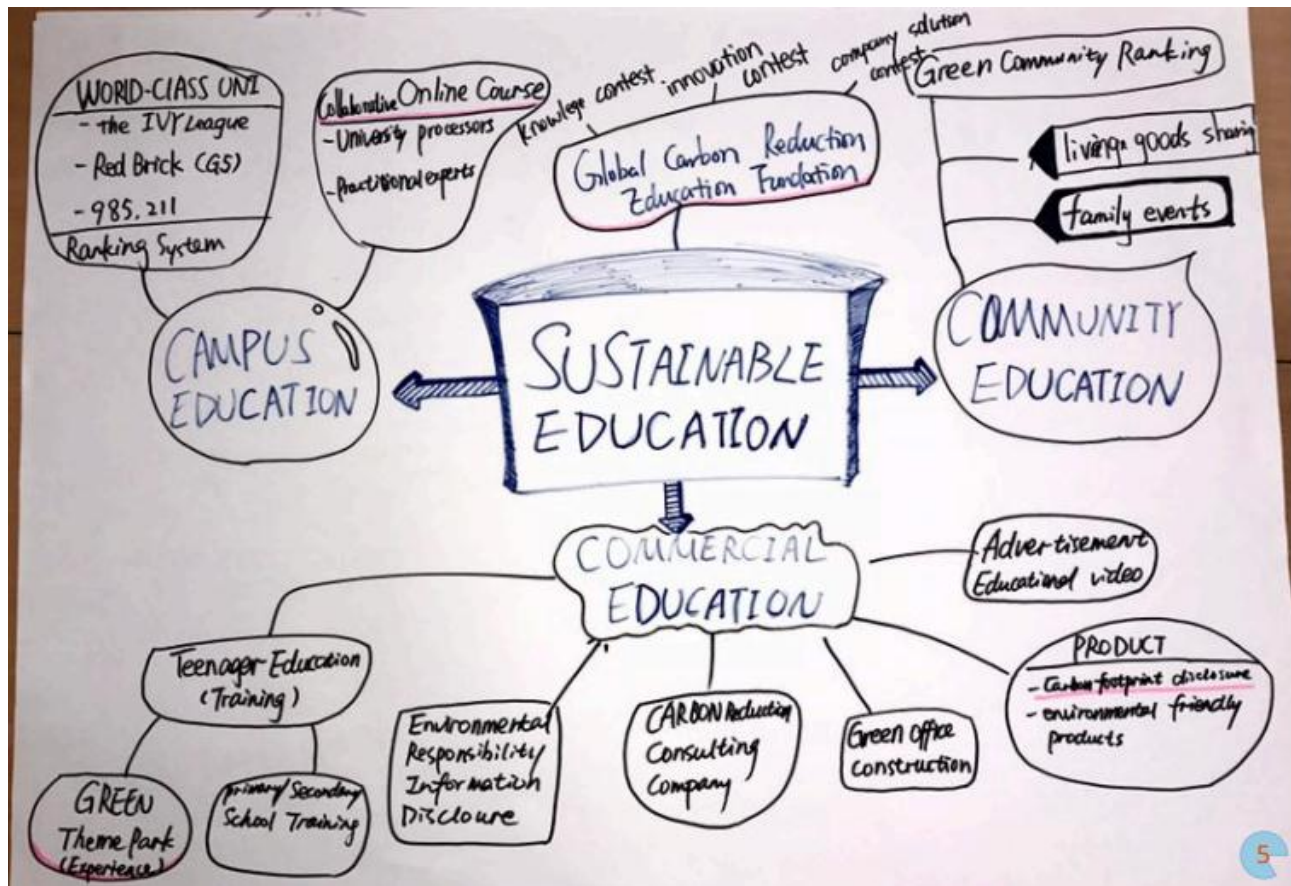 WORLD-CLASS UNI
- the IVY League
- Red Brick (G5)
- 985.211
Ranking System
Collaborative Online Course
- University processors
- Practitional experts
knowlege contest
innovation
contest
company solution
contest
Global Carbon Reduction
Education Fundation
Green Community Ranking
living goods sharing
family events
CAMPUS
EDUCATION
SUSTAINABLE
EDUCATION
COMMUNITY
EDUCATION
COMMERCIAL
EDUCATION
Advertisement
Educational video
PRODUCT
- Carbon footprint disclosure
- environmental friendly
products
Teenager Education
(Training)
GREEN
Theme Park
(Experience)
primary/Secondary
School Training
Environmental
Responsibility
Information
Discloure
CARBON Reduction
Consulting
Company
Green Office
construction
5